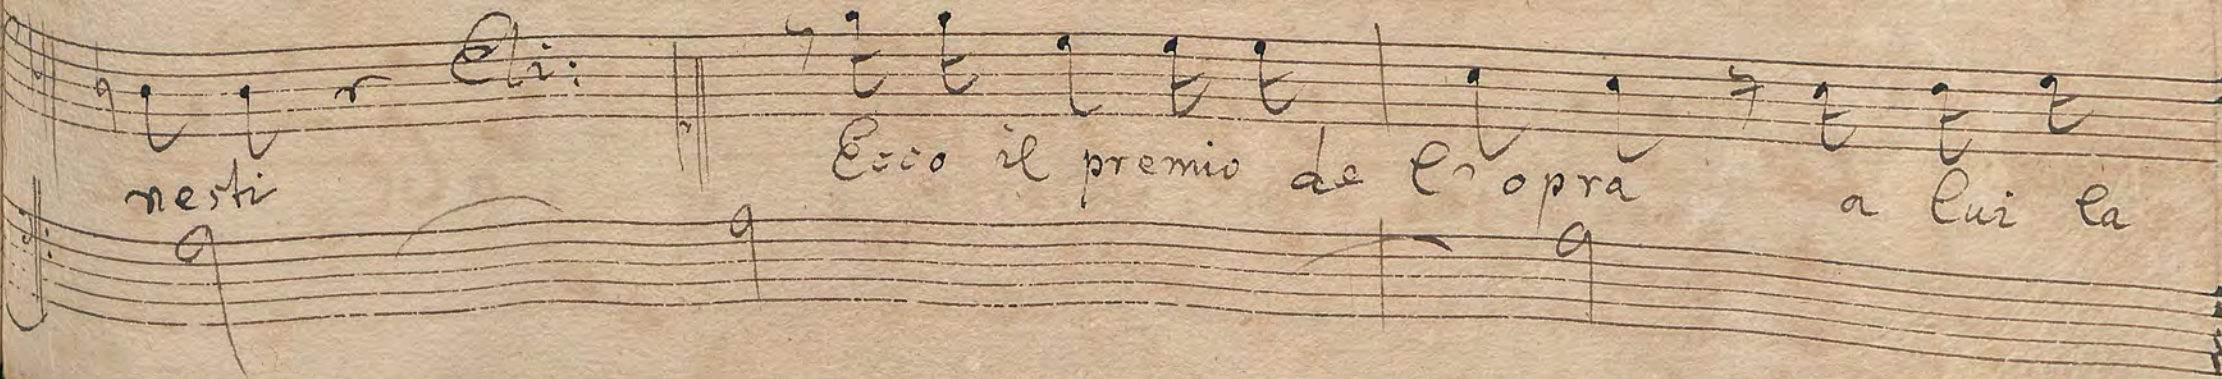 Eli:
nesti Ecco il premio de l'opra a lui la